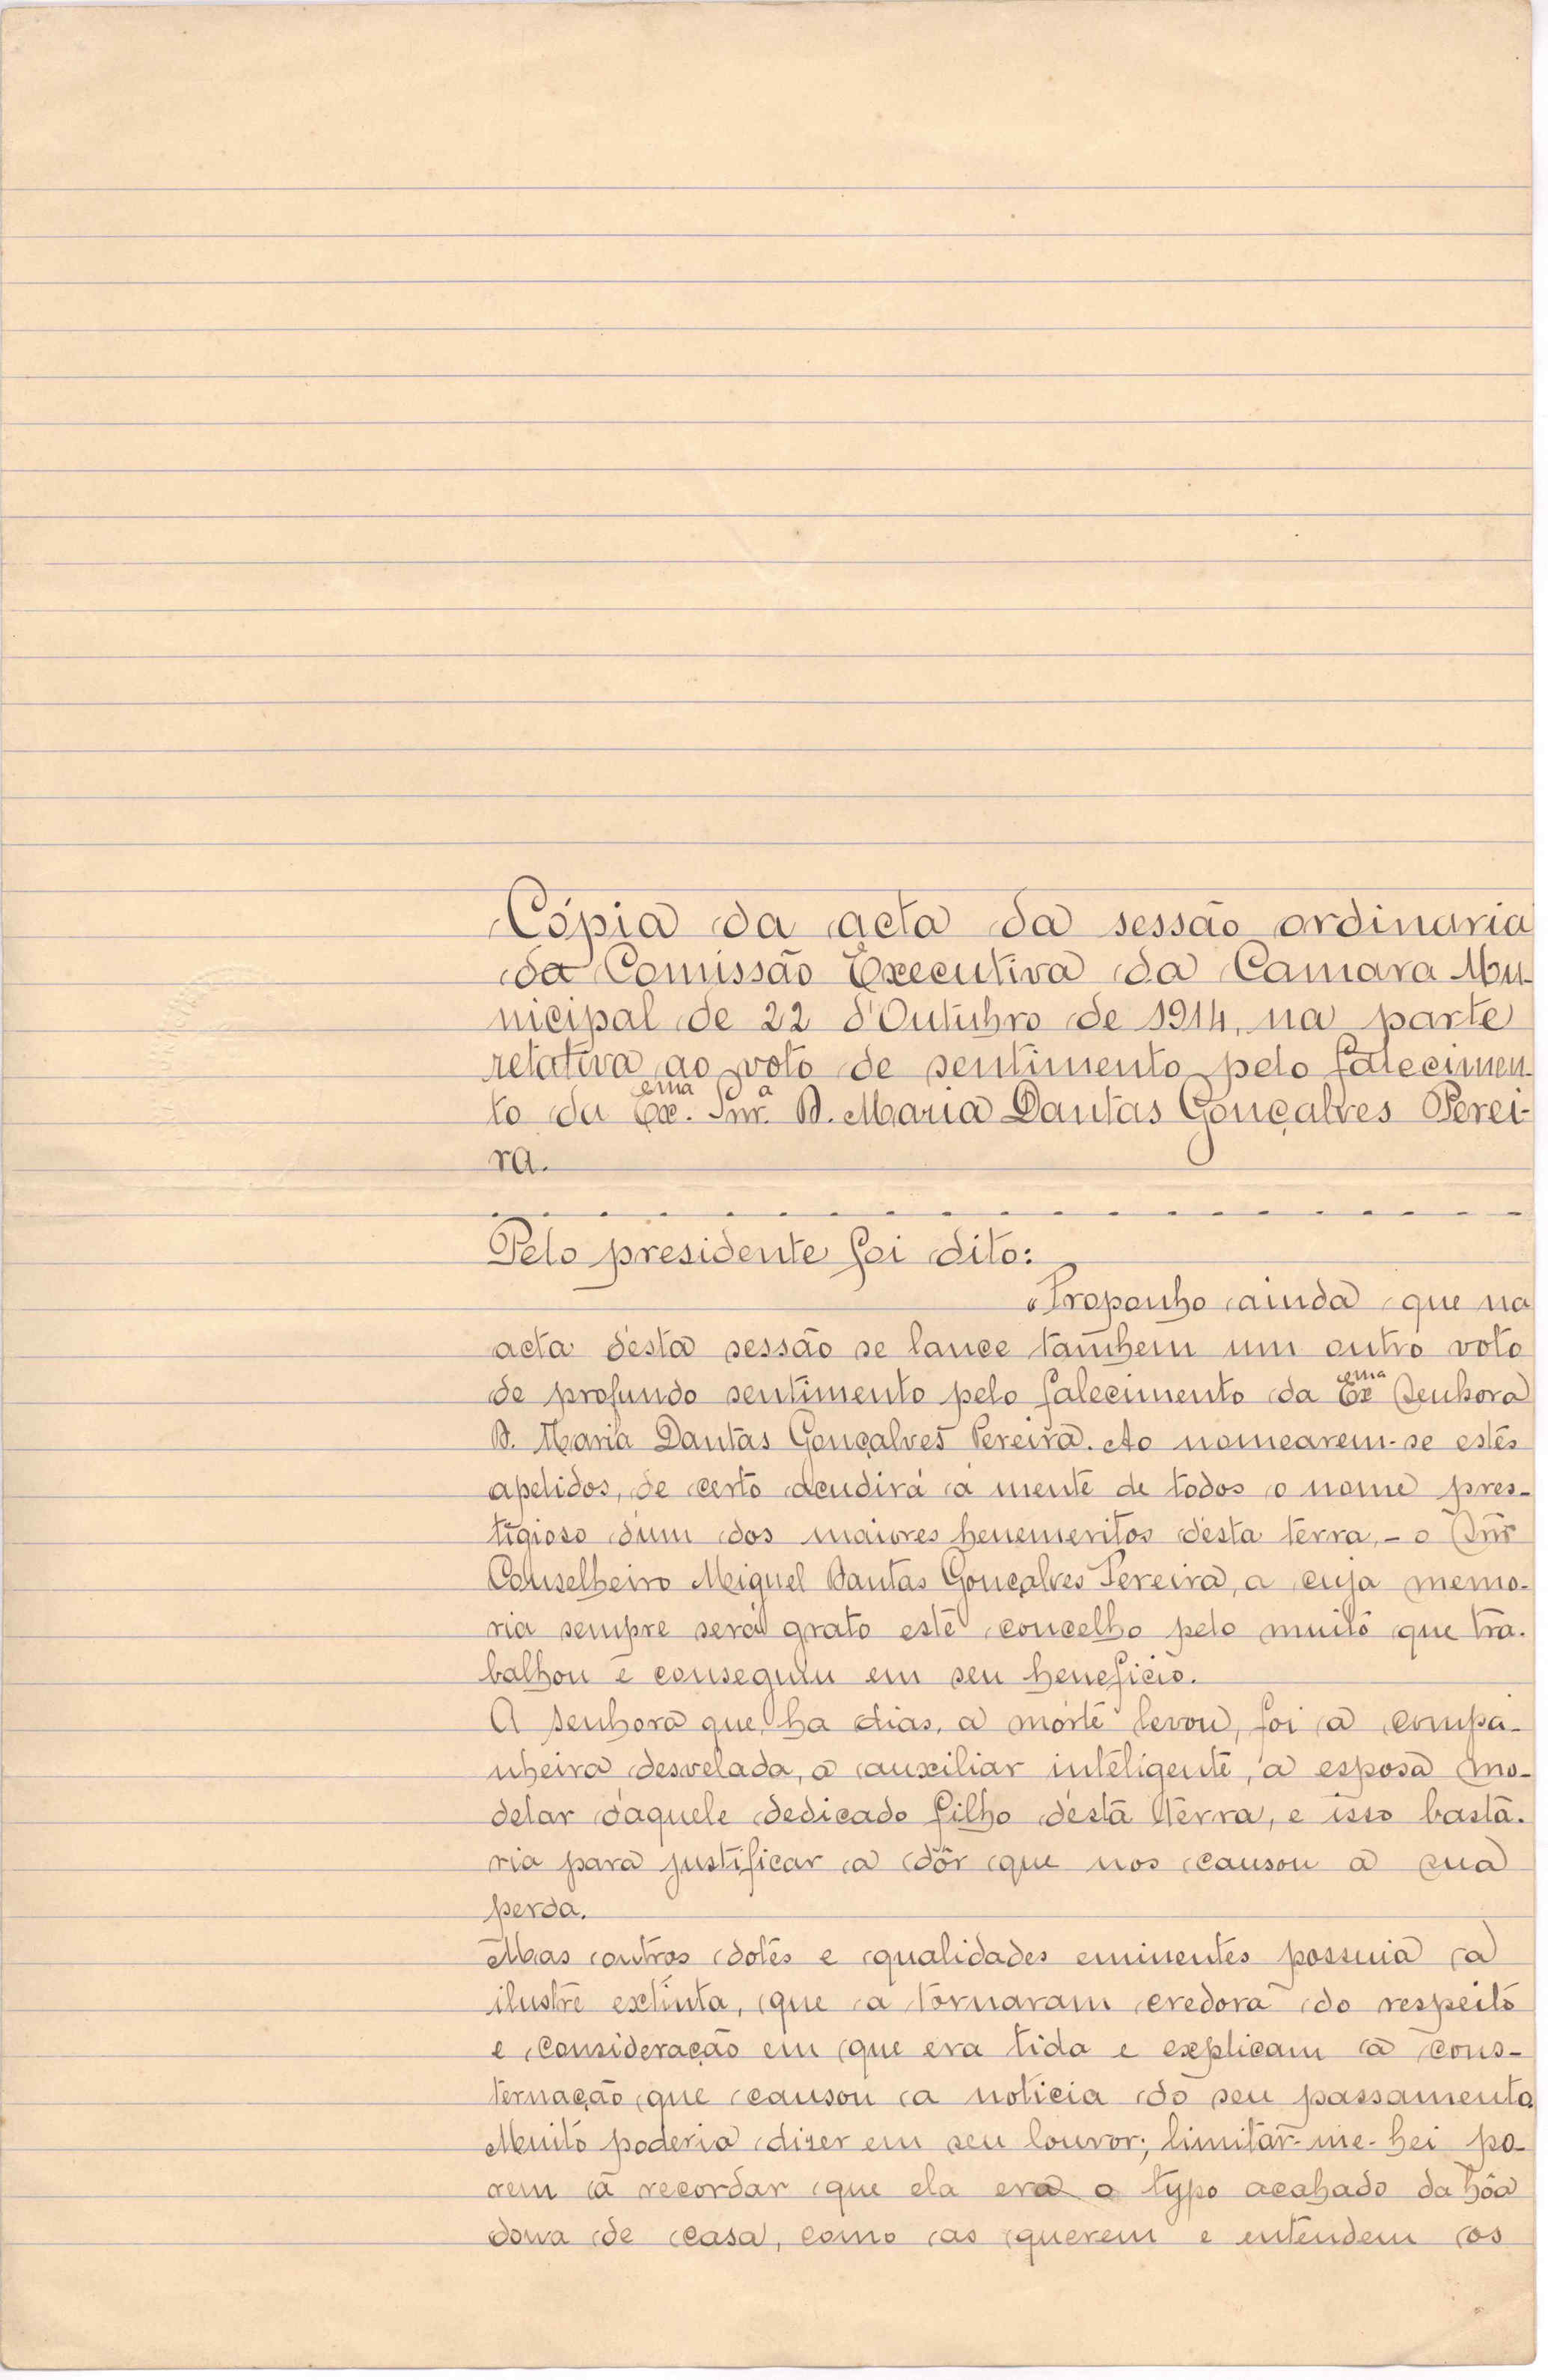 Cópia da acta da sessão ordinaria
da Comissão Executiva da Camara Mu-
nicipal de 22 d'Outubro de 1914, na parte
relativa ao voto de sentimento pelo falecimen-
to da Ex.ema Snr.a D. Maria Dantas Gonçalves Perei-
ra.
. - . - - - - - - - - - - - - - - - -
Pelo presidente foi dito:
"Proponho ainda que na
acta desta sessão se lance tambem um outro voto
de profundo sentimento pelo falecimento da Exema Senhora
D. Maria Dantas Gonçalves Pereira. Ao nomearem-se estes
apelidos, de certo acudirá á mente de todos o nome pres-
tigioso dum dos maiores benemeritos desta terra, - o Snr
Conselheiro Miguel Dantas Gonçalves Pereira, a cuja memo-
ria sempre será grato este concelho pelo muito que tra-
balhou e conseguiu em seu beneficio.
A senhora que, ha dias, a morte levou, foi a compa-
nheira desvelada, a auxiliar inteligente, a esposa mo-
delar daquele dedicado filho desta terra, e isso basta-
ria para justificar a dôr que nos causou a sua
perda.
Mas outros dotes e qualidades eminentes possuia a
ilustre extinta, que a tornaram credora do respeito
e consideração em que era tida e explicam a cons-
ternação que causou a noticia do seu passamento
Muito poderia dizer em seu louvor; limitar-me-hei po-
rem a recordar que ela era o typo acabado da bôa
dona de casa, como as querem e entendem os